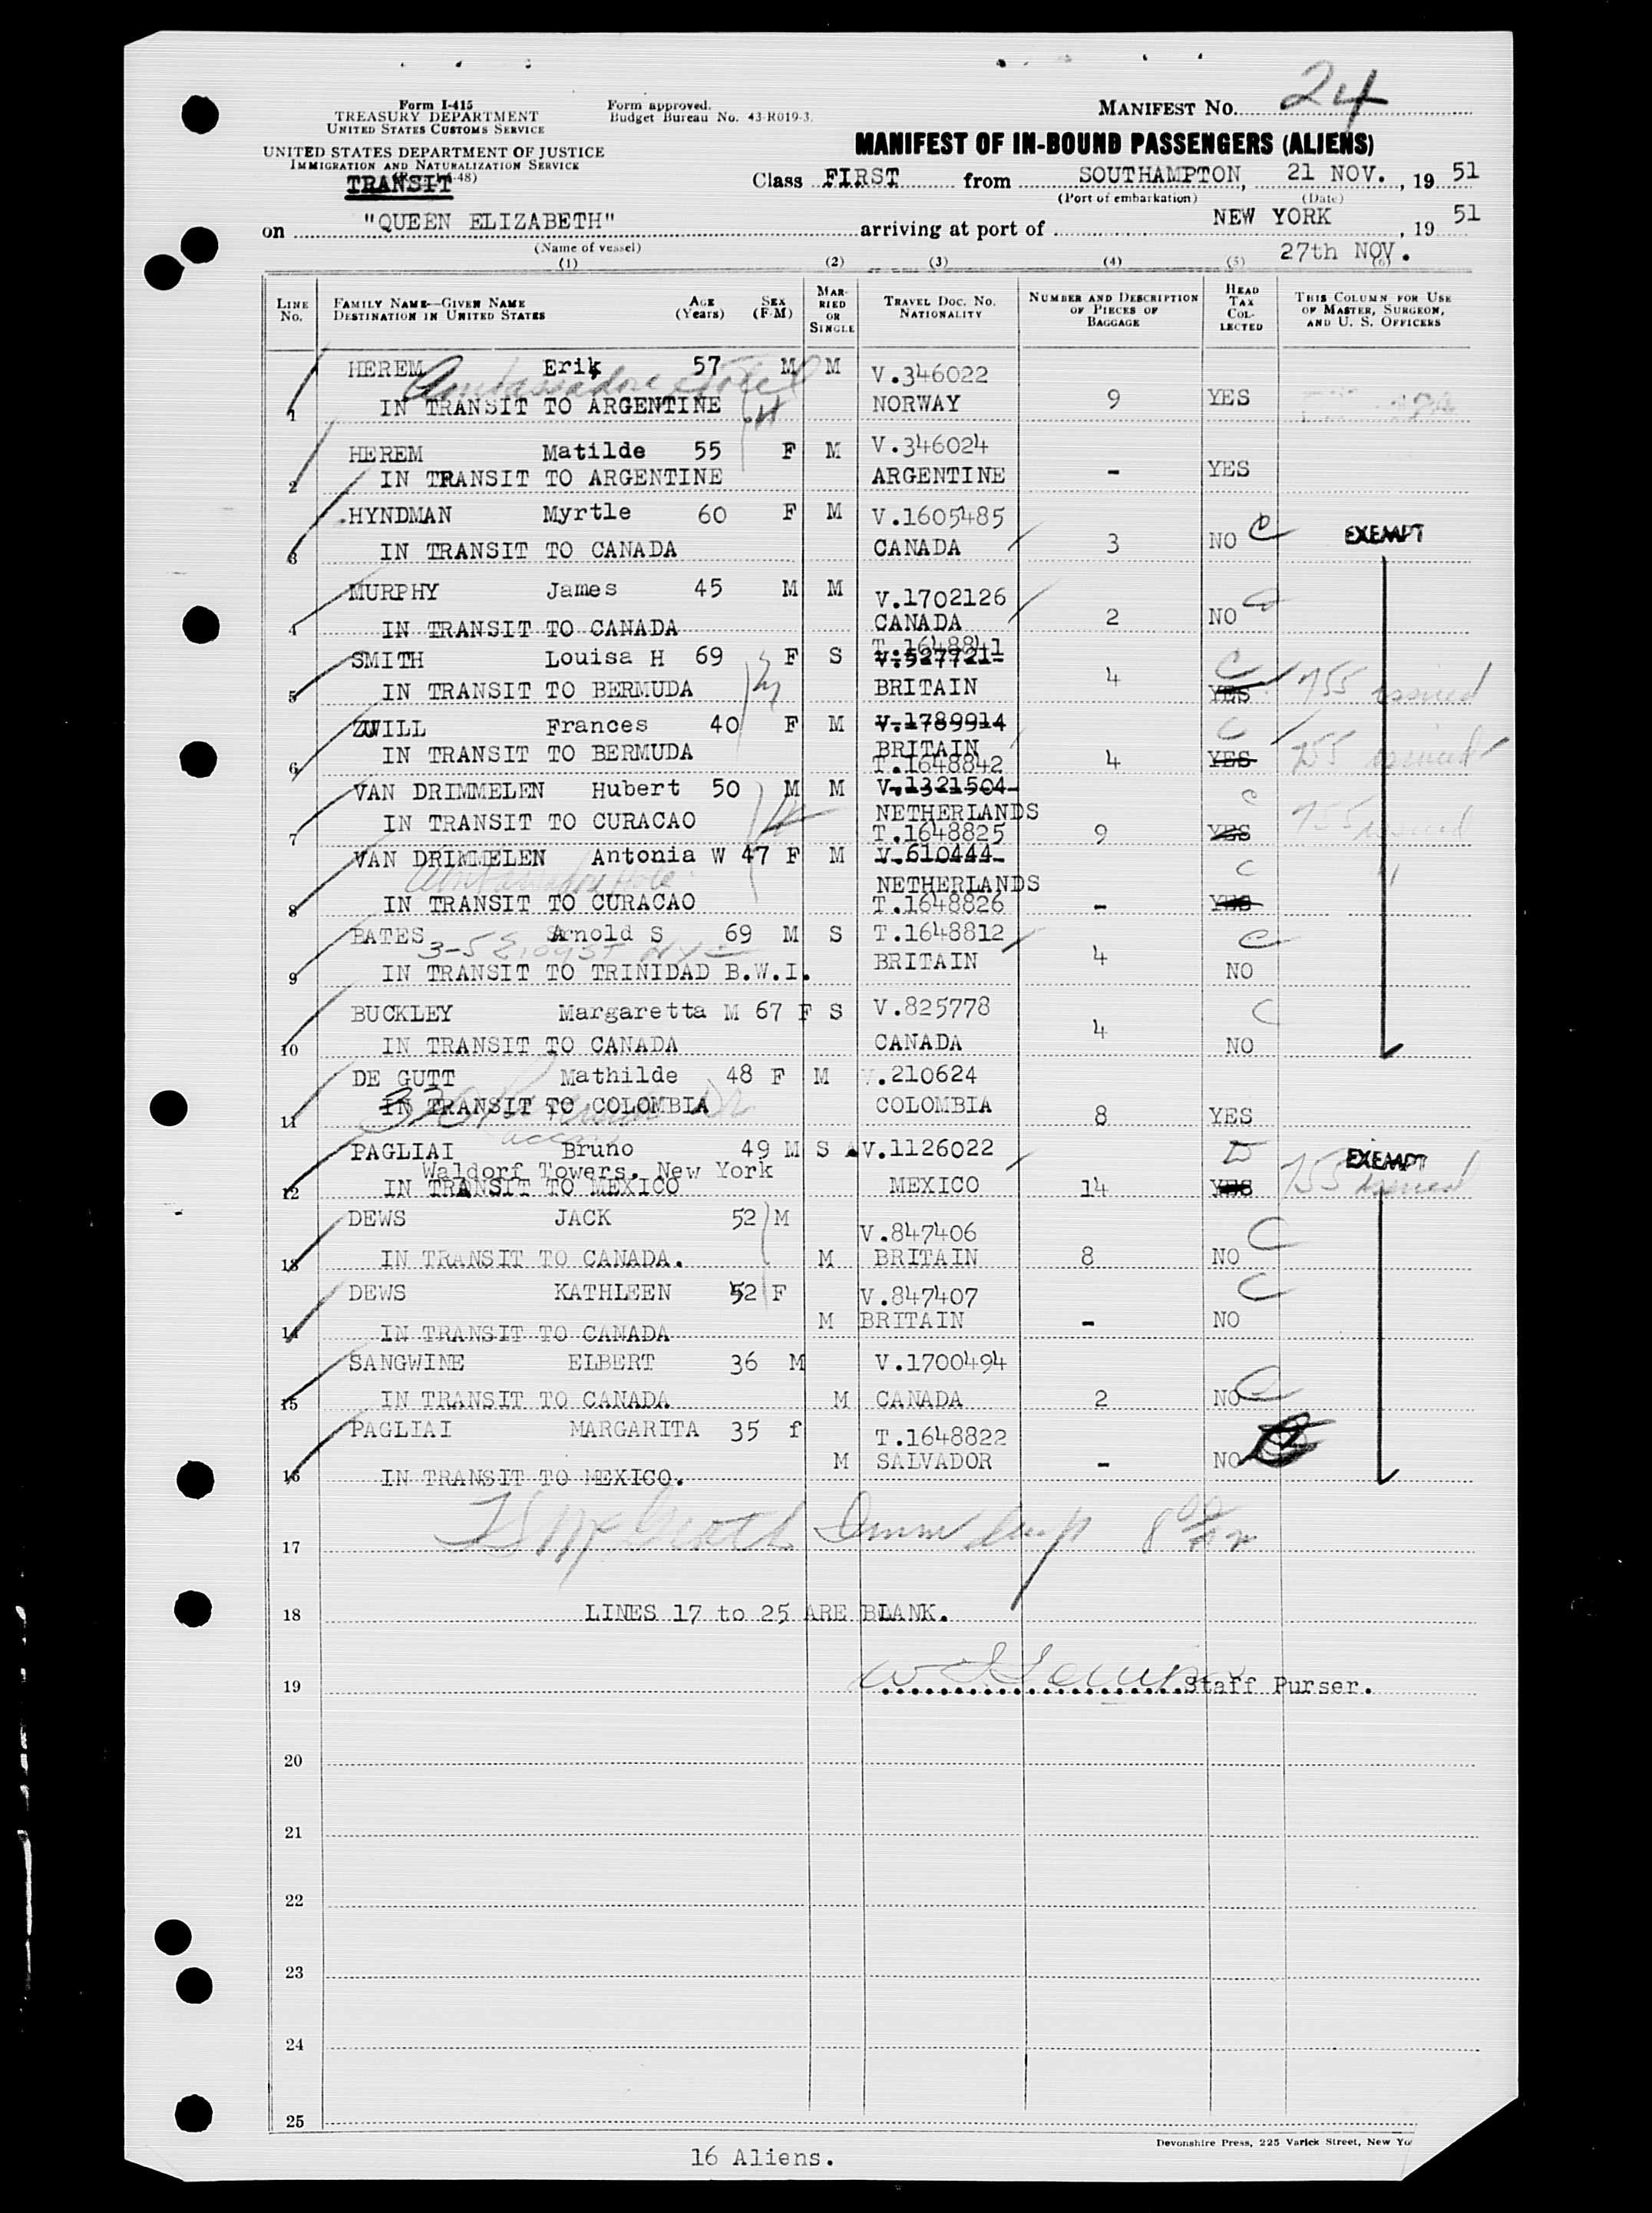 Form I-415
TREASURY DEPARTMENT
UNITED STATES CUSTOMS SERVICE
UNITED STATES DEPARTMENT OF JUSTICE
IMMIGRATION AND NATURALIZATION SERVICE
TRANSIT
Form approved.
Budget Bureau No. 43-R019-3.
MANIFEST No. 24
MANIFEST OF IN-BOUND PASSENGERS (ALIENS)
Class FIRST from SOUTHAMPTON, 21 NOV., 19 51
(Port of embarkation) (Date)
on "QUEEN ELIZABETH" arriving at port of NEW YORK, 19 51
(Name of vessel) 27th NOV.
(1) (2) (3) (4) (5) (6)
LINE No. FAMILY NAME—GIVEN NAME DESTINATION IN UNITED STATES AGE (Years) SEX (F-M) MARRIED OR SINGLE TRAVEL DOC. NO. NATIONALITY NUMBER AND DESCRIPTION OF PIECES OF BAGGAGE HEAD TAX COLLECTED THIS COLUMN FOR USE OF MASTER, SURGEON, AND U. S. OFFICERS
HEREM Erik 57 M M V.346022
Ambassador Hotel
1 IN TRANSIT TO ARGENTINE NORWAY 9 YES
HEREM Matilde 55 F M V.346024
2 IN TRANSIT TO ARGENTINE ARGENTINE - YES
HYNDMAN Myrtle 60 F M V.1605485
3 IN TRANSIT TO CANADA CANADA 3 NO C EXEMPT
MURPHY James 45 M M V.1702126
4 IN TRANSIT TO CANADA CANADA 2 NO C
T.1648841
SMITH Louisa H 69 F S V.527721 C
5 IN TRANSIT TO BERMUDA BRITAIN 4 YES 755 issued
ZUILL Frances 40 F M V.1789914 C
6 IN TRANSIT TO BERMUDA BRITAIN 4 YES 755 issued
T.1648842
VAN DRIMMELEN Hubert 50 M M V.1321504 C
7 IN TRANSIT TO CURACAO NETHERLANDS 9 YES 755 issued
T.1648825
VAN DRIMMELEN Antonia W 47 F M V.610444 C "
Ambassador Hotel
8 IN TRANSIT TO CURACAO NETHERLANDS - YES
T.1648826
BATES Arnold S 69 M S T.1648812 C
3-5 E 109 ST NYC
9 IN TRANSIT TO TRINIDAD B.W.I. BRITAIN 4 NO
BUCKLEY Margaretta M 67 F S V.825778 C
10 IN TRANSIT TO CANADA CANADA 4 NO
DE GUTT Mathilde 48 F M V.210624
11 IN TRANSIT TO COLOMBIA COLOMBIA 8 YES
PAGLIAI Bruno 49 M S V.1126022 EXEMPT
Waldorf Towers, New York
12 IN TRANSIT TO MEXICO MEXICO 14 YES 755 issued
DEWS JACK 52 M V.847406 C
13 IN TRANSIT TO CANADA. M BRITAIN 8 NO
DEWS KATHLEEN 52 F V.847407 C
14 IN TRANSIT TO CANADA M BRITAIN - NO
SANGWINE ELBERT 36 M V.1700494
15 IN TRANSIT TO CANADA M CANADA 2 NO C
PAGLIAI MARGARITA 35 f T.1648822
16 IN TRANSIT TO MEXICO. M SALVADOR - NO
17 McGrath Imm Insp 8 00
18 LINES 17 to 25 ARE BLANK.
19 Staff Purser.
20
21
22
23
24
25
Devonshire Press, 225 Varick Street, New Yo
16 Aliens.